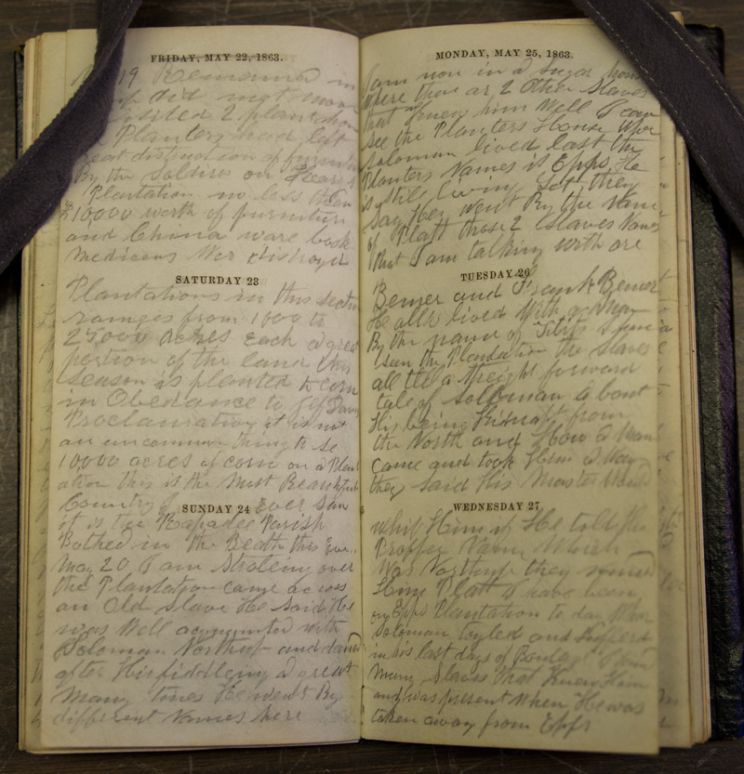 FRIDAY, MAY 22, 1863.
19 Remained in
did not move
visited 2 plantations
Planters had left
great distruction of furniture
By the Soldiers on
Plantation no less then
$10000 worth of furniture
and China ware book
Medicens Wer distroyd
SATURDAY 23
Plantations in this section
ranges from 1000 to
25000 acres Each a great
portion of the land this
season is planted to corn
in Obediance to Jef Davis
Proclamation it is not
an uncommon thing to se
10000 acres of corn on a Plant
ation this is the Most Beautiful
Country I Ever saw
SUNDAY 24
it is the Rapadee Parish
Bathed in the this Eve
May 20 I am Strolling over
the Plantation came across
an Old Slave He said He
was Well acquainted with
Solomon Northup and danced
after His fiddleing a great
Many times He went By
different Names here
MONDAY, MAY 25, 1863.
I am now in a Sugar House
Where there ar 2 Other Slaves
that Knew him Well I can
see the Planters House Wher
Solomon lived last the
Planters Names is Epps He
is Still living Yet they
Say He went By the name
of Platt those 2 Slaves Names
that I am talking with are
TUESDAY 26
and Frank
He allso lived With a Man
By the name of I have
seen the Plantation the Slaves
all tell a streight forward
tale of Soloman about
His being Kidnapt from
the North and How a Man
came and took Him a Way
they said His Master Would
WEDNESDAY 27
Whip Him if He told the
Propper Name Which
Was Northup they named
Him Platt I have been
on Epps Plantation to day Wher
Soloman toyled and
in his last days of Bondage I saw
Many Slaves that Knew Him
and was present When He was
taken away from Epps